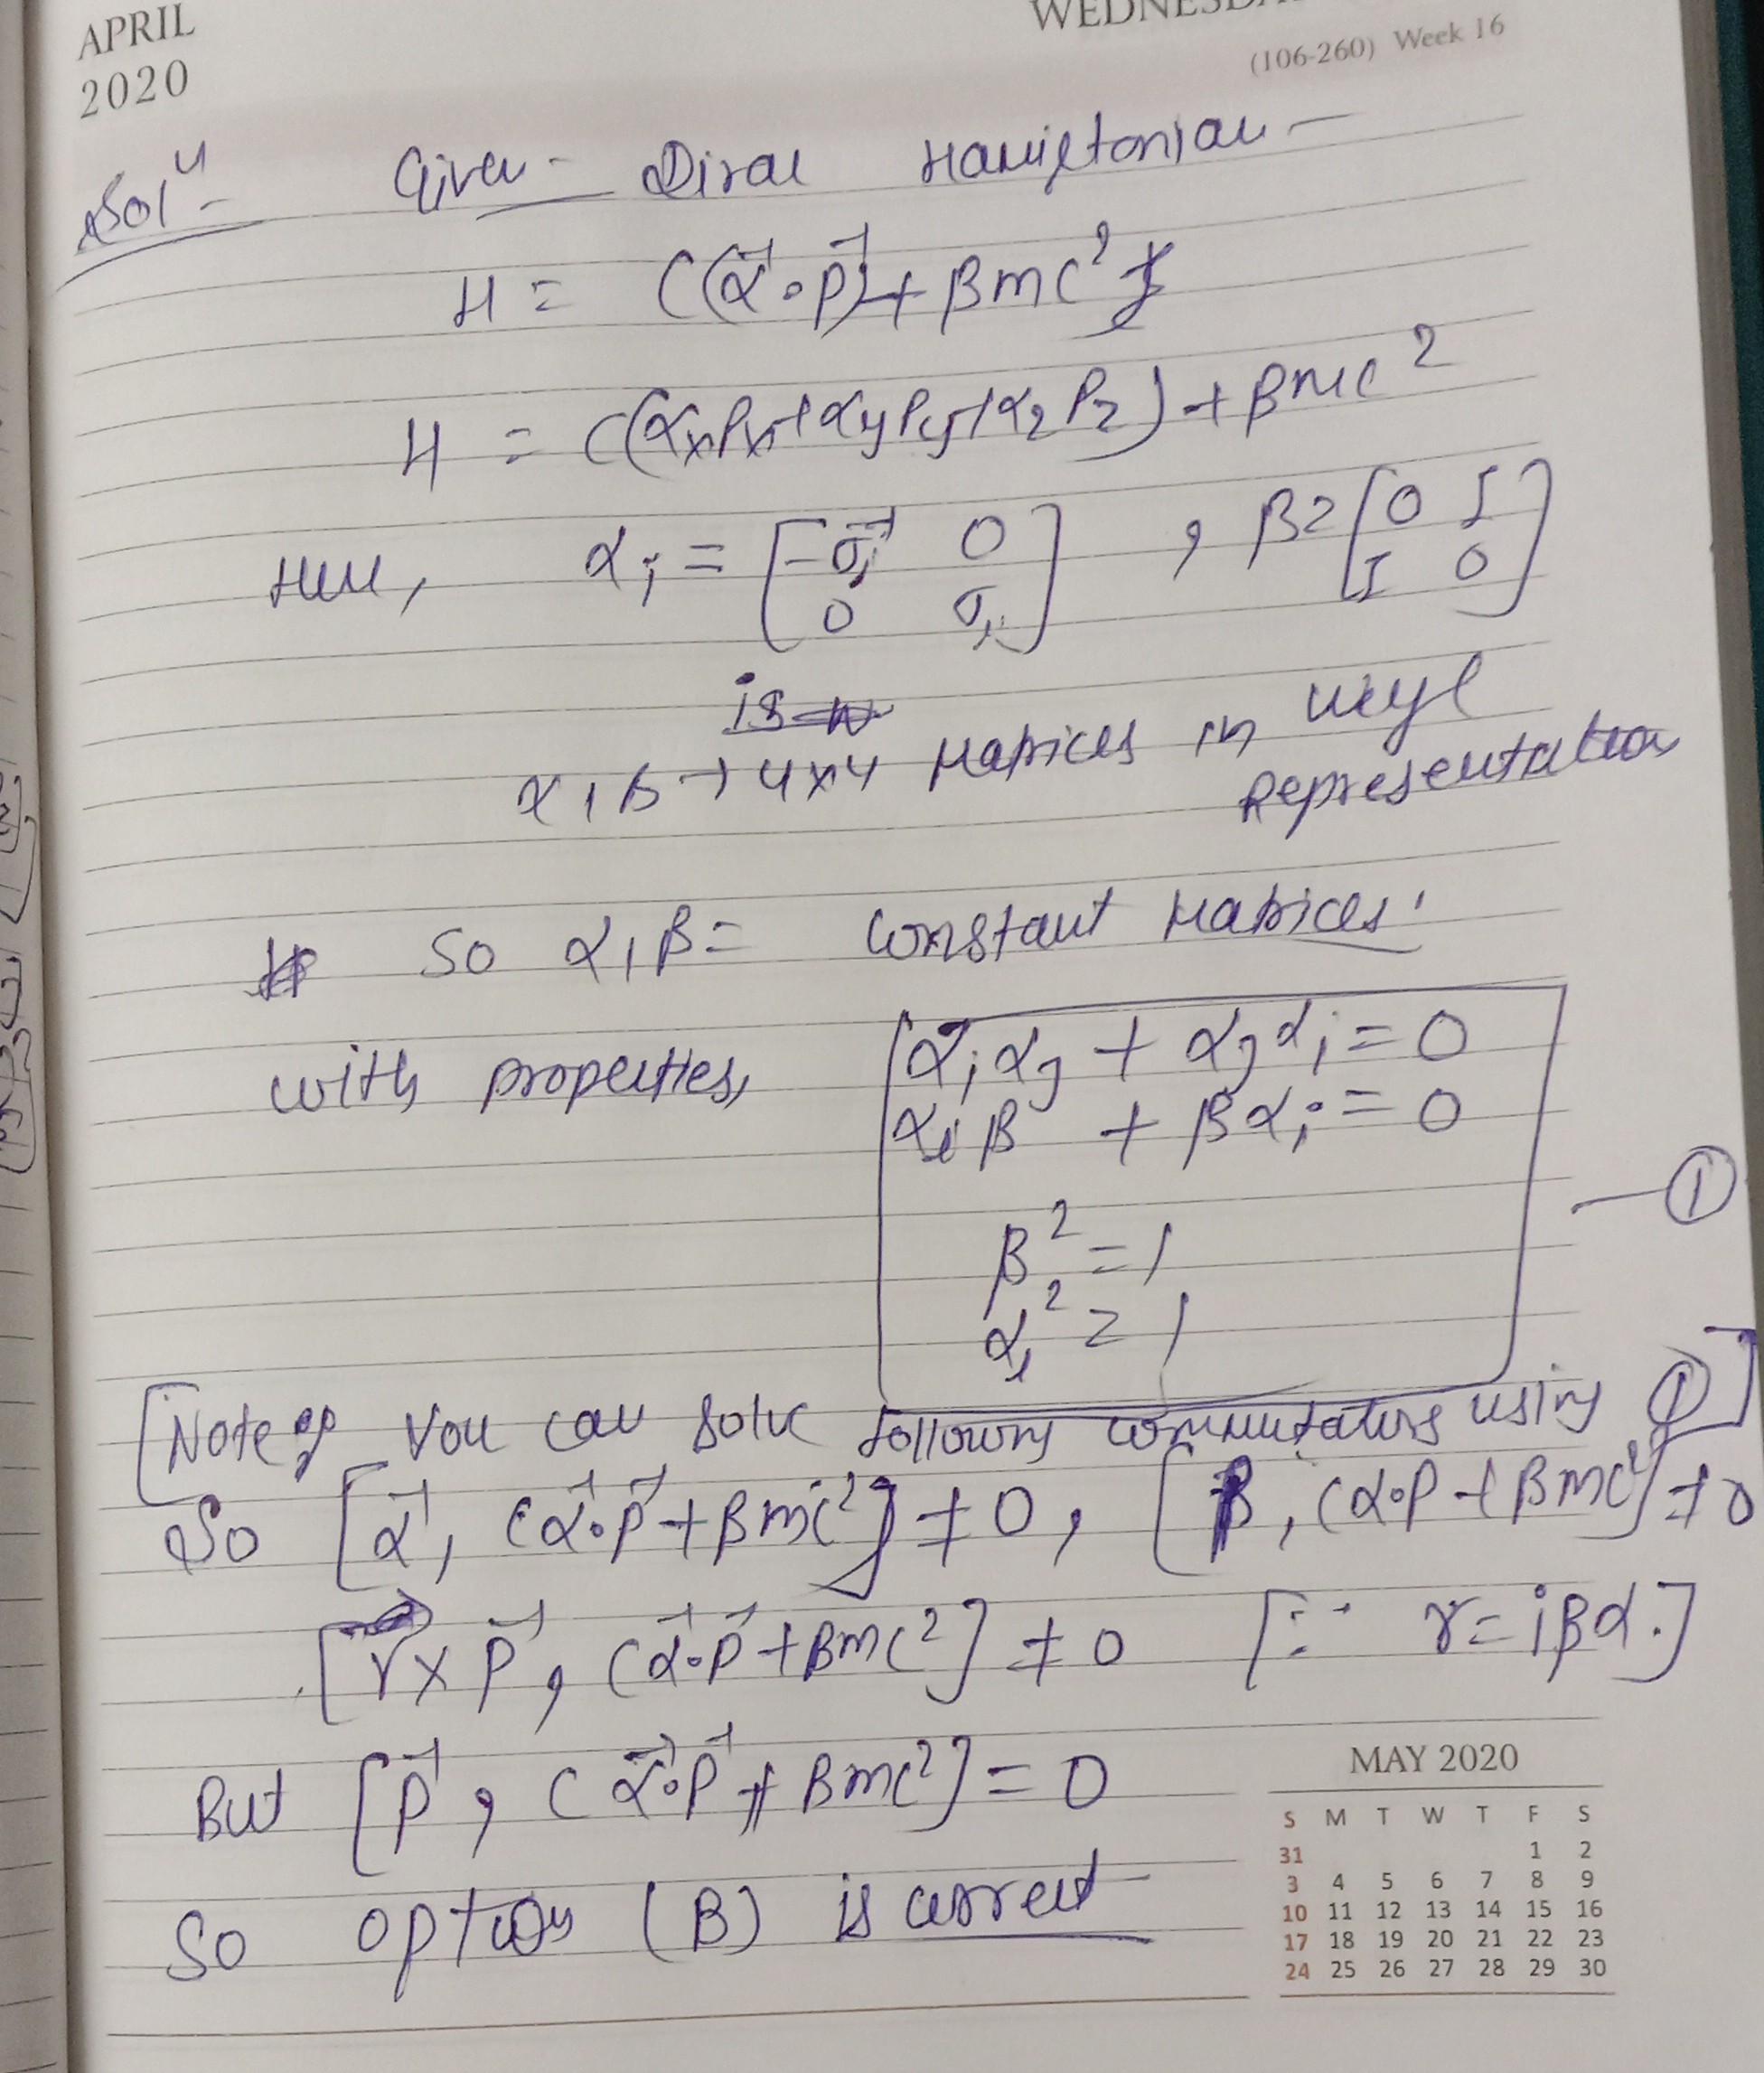 APRIL
2020
WEDNESDA
(106-260) Week 16
Solⁿ - Given - Dirac Hamiltonian -
H = C(α⃗∘P⃗) + βmc²
H = C(αₓPₓ+αyPy+αzPz) + βmc²
Here, αᵢ = [-σ⃗ᵢ 0 , β = [0 I
0 σᵢ] I 0]
is
α, β → 4x4 Matrices in Weyl
Representation
So α, β = Constant Matrices.
with properties, αᵢαⱼ + αⱼαᵢ = 0
αᵢβ + βαᵢ = 0
— ①
β² = 1
αᵢ² = 1
[Note: You can solve following commutators using ①]
So [α⃗, Cα⃗∘P⃗ + βmc²] ≠ 0, [β, Cα∘P + βmc²] ≠ 0
[r × P⃗, Cα⃗∘P⃗ + βmc²] ≠ 0 [∵ γ = iβα.]
But [P⃗, Cα⃗∘P⃗ + βmc²] = 0
So option (B) is correct
MAY 2020
S M T W T F S
31 1 2
3 4 5 6 7 8 9
10 11 12 13 14 15 16
17 18 19 20 21 22 23
24 25 26 27 28 29 30